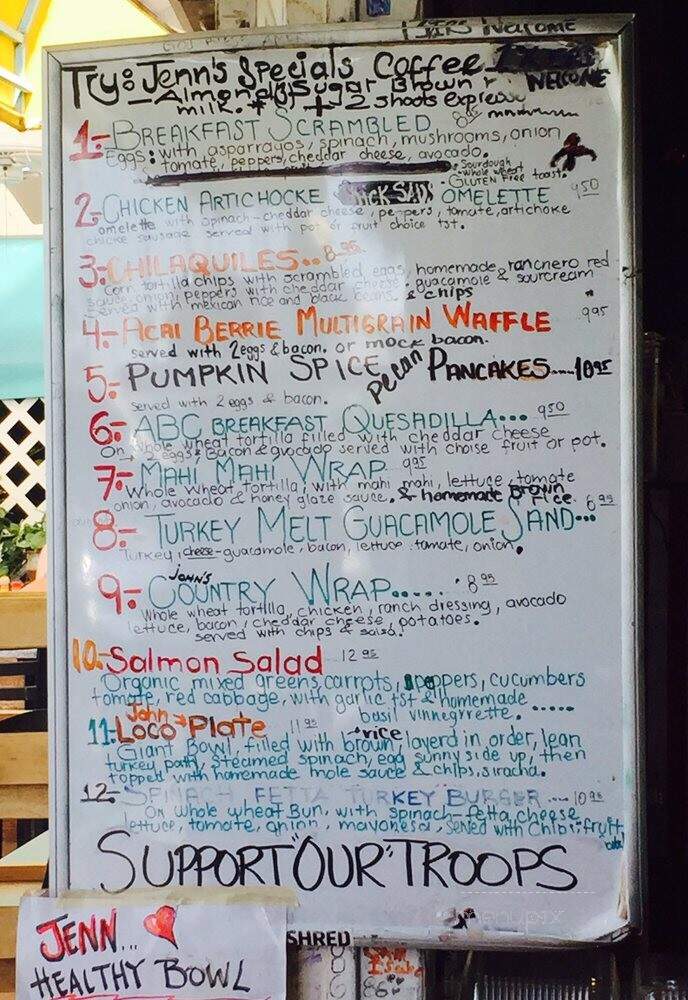 Welcome
Try: Jenn's Specials Coffee
WELCOME
- Almond Sugar Brown
milk. + + 2 shoots expresso
1- BREAKFAST SCRAMBLED
Eggs: with asparrayos, spinach, mushrooms, onion
tomate, peppers, cheddar cheese, avocado.
• Sourdough
• Whole wheat
• Gluten Free toast.
2- CHICKEN ARTICHOCKE OMELETTE 950
omelette with spinach-cheddar cheese, peppers, tomate, artichoke
chicke sausage served with pot or fruit choice tst.
3- CHILAQUILES.. 8-95
Corn tortilla chips with scrambled eggs, homemade, rancnero red
sauce, onion, peppers with cheddar cheese, guacamole & sourcream
served with mexican rice and black beans & chips
4- ACAI BERRIE MULTIGRAIN WAFFLE 995
served with 2 eggs & bacon. or mock bacon.
5- PUMPKIN SPICE pecan PANCAKES....1095
served with 2 eggs & bacon.
6- ABC BREAKFAST QUESADILLA... 950
On whole wheat tortilla filled with cheddar cheese
eggs, Bacon & avocado served with choise fruit or pot.
7- MAHI MAHI WRAP 995
Whole wheat tortilla, with mahi mahi, lettuce, tomate
onion, avocado & honey glaze sauce. & homemade Brown
rice.
8- TURKEY MELT GUACAMOLE SAND... 895
Turkey, cheese-guacamole, bacon, lettuce tomate, onion.
9- JOHN'S
COUNTRY WRAP..... 895
Whole wheat tortilla, chicken, ranch dressing, avocado
lettuce, bacon, cheddar cheese, potatoes.
served with chips & salsa.
10- Salmon Salad 1295
Organic mixed greens, carrots, peppers, cucumbers
tomate, red cabbage, with garlic tst & homemade
basil vinnegrrette. .....
11- John
LOCO Plate 1195 + rice
Giant Bowl, filled with brown, layerd in order, lean
turkey patty, steamed spinach, egg sunny side up, then
topped with homemade mole sauce & chips, siracha.
12- SPINACH FETTA TURKEY BURGER ... 1095
On whole wheat Bun, with spinach-fetta cheese
lettuce, tomate, onion, mayonesa, served with chips: fruit
SUPPORT "OUR" TROOPS
menupix
JENN...
HEALTHY BOWL
SHRED